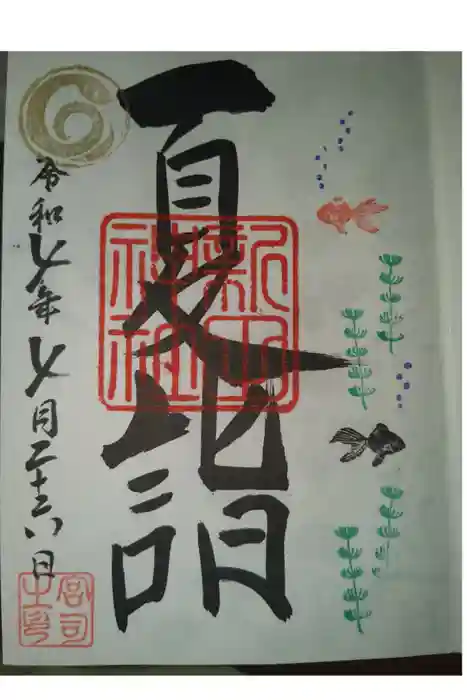 夏詣
新田
神社
令和七年七月二十六日
宮司
之印